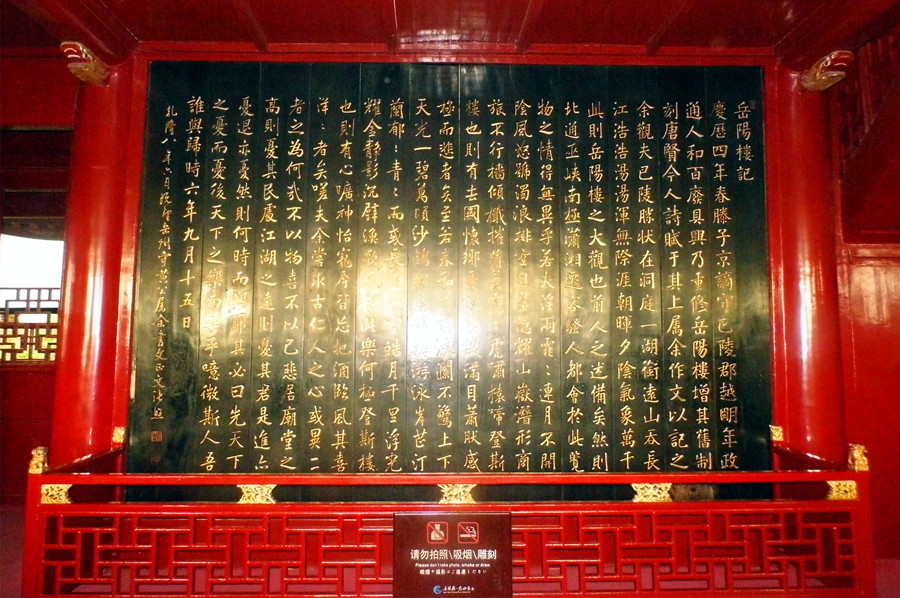 岳陽樓記
慶歷四年春滕子京謫守巴陵郡越明年政
通人和百廢具興乃重修岳陽樓增其舊制
刻唐賢今人詩賦于其上屬余作文以記之
余觀夫巴陵勝狀在洞庭一湖銜遠山吞長
江浩浩湯湯渾無際涯朝暉夕陰氣象萬千
此則岳陽樓之大觀也前人之述備矣然則
北通巫峽南極瀟湘遷客騷人都會於此覽
物之情得無異乎若夫淫雨霏：連月不開
陰風怒號濁浪排空日星隱耀山嶽潛形商
旅不行檣傾檝摧薄暮冥：虎嘯猿啼登斯
樓也則有去國懷鄉滿目蕭然感
極而悲者矣至若春和波瀾不驚上下
天光一碧萬頃沙鷗游泳岸芷汀
蘭郁：青：而或長空皓月千里浮光
耀金靜影沉璧漁歌此樂何極登斯樓
也則有心曠神怡寵辱皆忘把酒臨風其喜
洋：者矣嗟夫余嘗求古仁人之心或異二
者之為何哉不以物喜不以己悲居廟堂之
高則憂其民處江湖之遠則憂其君是進亦
憂退亦憂然則何時而樂耶其必曰先天下
之憂而憂後天下之樂而樂乎噫微斯人吾
誰與歸時六年九月十五日
乾隆八年六月岳州守黃屬余書文正文張照
请勿拍照\吸烟\雕刻
Please don't take photo, smoke or draw.
喫煙や撮影はご遠慮ください